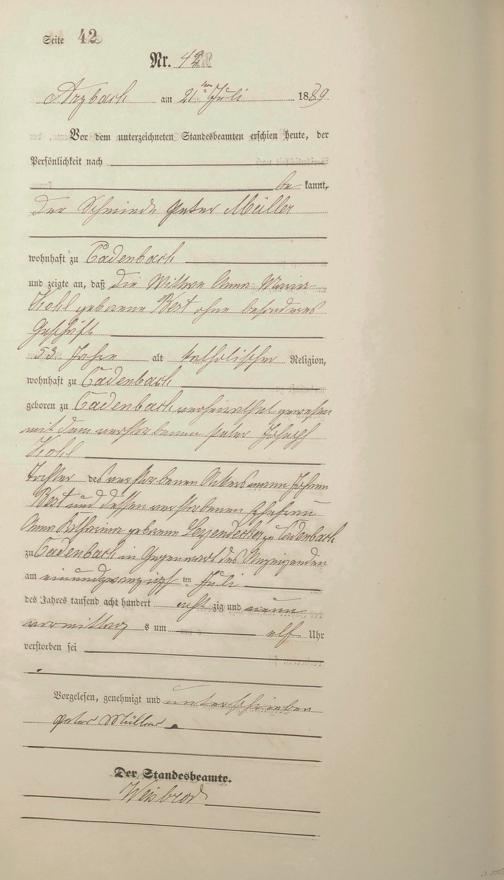 Seite 42
Nr. 42
Arzbach am 21ten Juli 1889
Vor dem unterzeichneten Standesbeamten erschien heute, der
Persönlichkeit nach
be kannt,
der Schmiede Peter Müller
wohnhaft zu Cadenbach
und zeigte an, daß die Wittwe Anna Maria
Kohl geborene Best ohne besonderes
Geschäft
53 Jahre alt katholischer Religion,
wohnhaft zu Cadenbach
geboren zu Cadenbach verheirathet gewesen
mit dem verstorbenen Peter Joseph
Kohl
Tochter des verstorbenen Ackersmann Johann
Best und dessen verstorbenen Ehefrau
Anna Katharina geborene zu Cadenbach
zu Cadenbach in Gegenwart des Anzeigenden
am einundzwanzigsten Juli
des Jahres tausend acht hundert acht zig und neun
vormittags um elf Uhr
verstorben sei
Vorgelesen, genehmigt und unterschrieben
Peter Müller
Der Standesbeamte.
Weisbrod